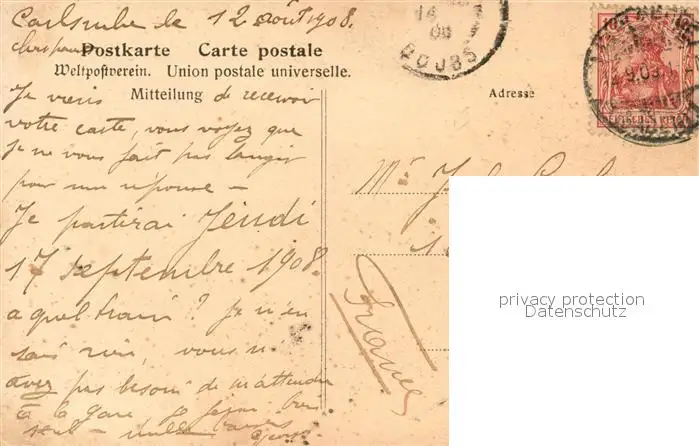 Carlsruhe le 12 août 1908.
Postkarte Carte postale
Weltpostverein. Union postale universelle.
Mitteilung
Adresse
DOUBS
DEUTSCHES REICH
Je viens de recevoir
votre carte, vous voyez que
je ne vous fait pas languir
pour ma réponse —
Je partirai Jeudi
17 septembre 1908.
a quel train? Je n'en
sais rien, vous n'
avez pas besoin de m'attendre
à la gare je
seul - mille baisers
Mr
France
privacy protection
Datenschutz